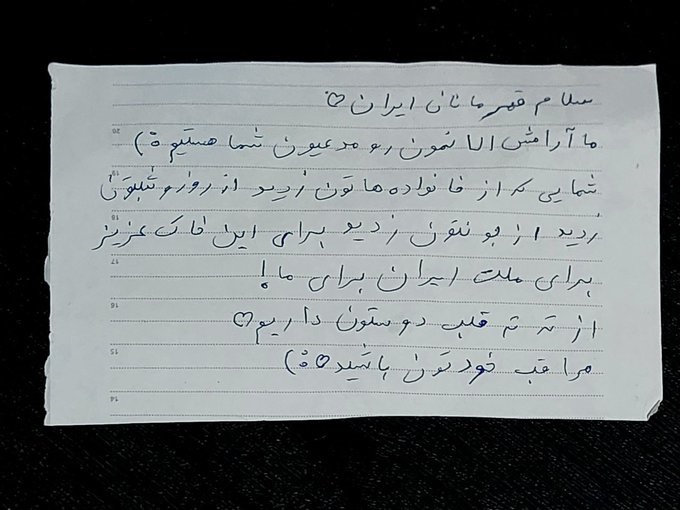 سلام قهرمانان ایران♡
ما آرامش الانمون رو مدیون شما هستیم :)
شمایی که از خانواده هاتون زدید از روز و شبتون
زدید از جونتون زدید برای این خاک عزیز
برای ملت ایران برای ما!
از ته ته قلب دوستون داریم♡
مراقب خودتون باشید♡:)
20
19
18
17
16
15
14